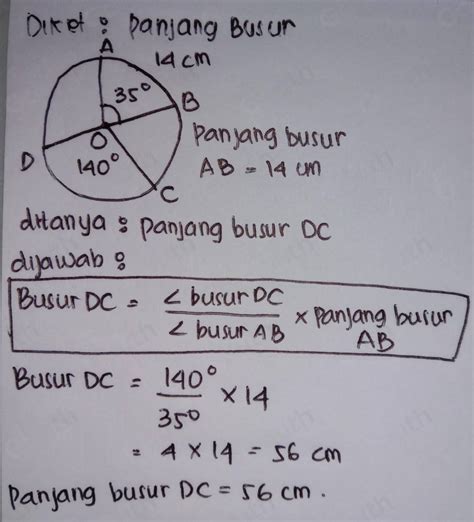 Diket : Panjang Busur
A
14 cm
35°
B
O
Panjang busur
D
140°
AB = 14 cm
C
ditanya : panjang busur DC
dijawab :
Busur DC = ∠ busur DC / ∠ busur AB × Panjang busur AB
Busur DC = 140° / 35° × 14
= 4 × 14 = 56 cm
Panjang busur DC = 56 cm.